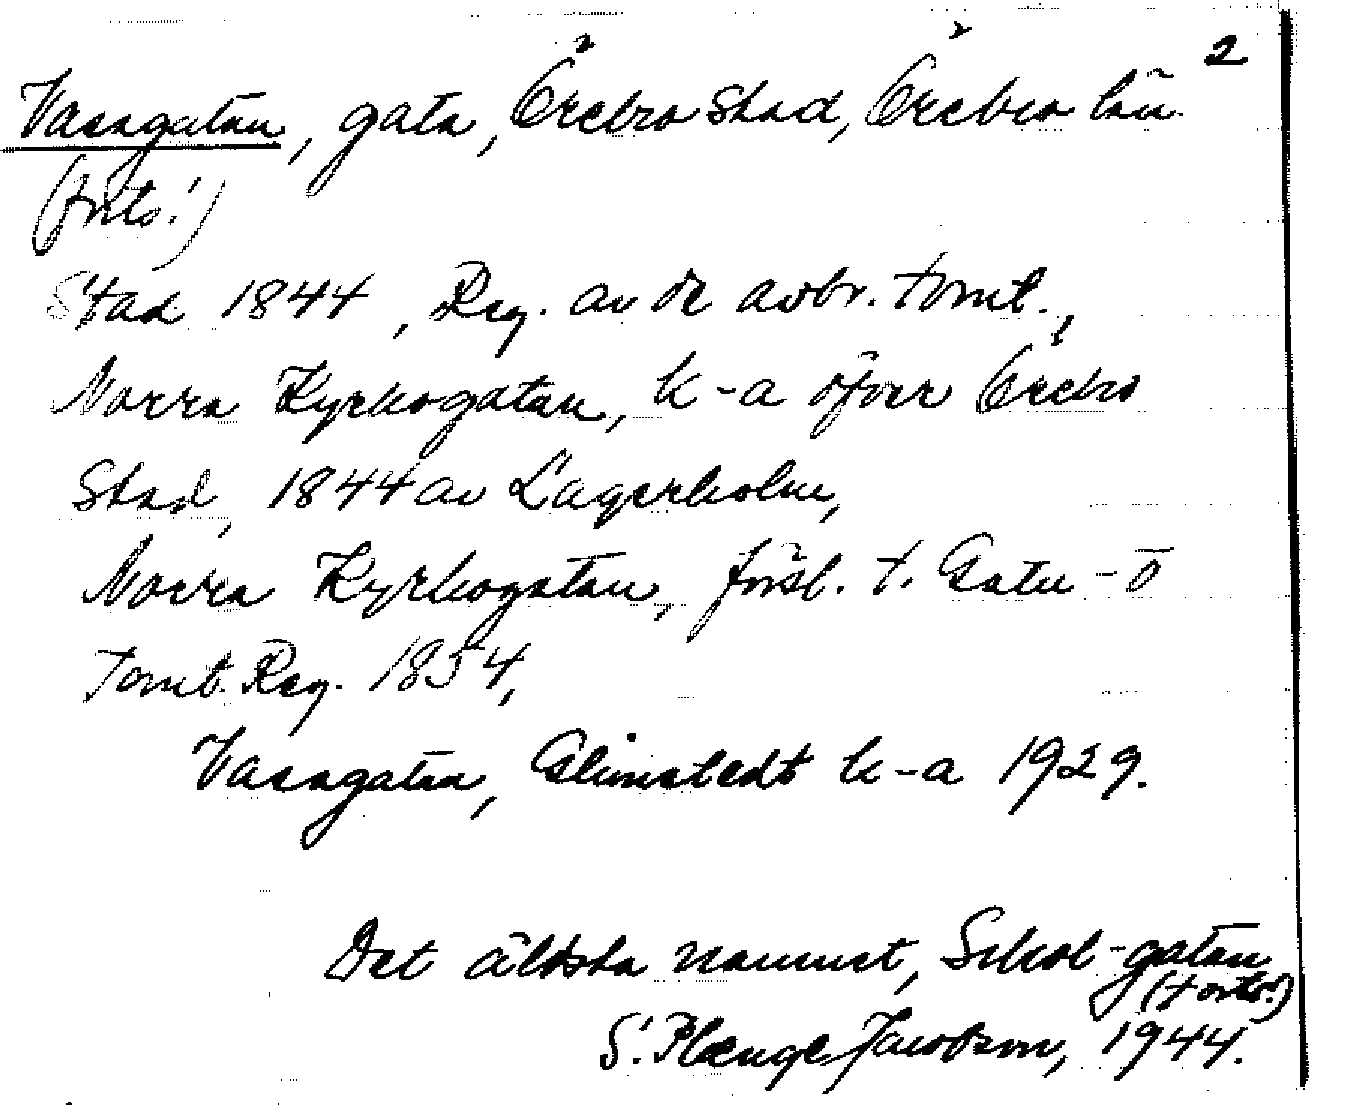 2
Vasagatan, gata, Örebro stad, Örebro län
(forts.!)
Stad 1844, Reg. av de avbr. tomt.,
Norra Kyrkogatan, k-a öfver Örebro
Stad, 1844 av Lagerholm,
Norra Kyrkogatan, försl. t. Gatu-o
Tomt. Reg. 1854,
Vasagatan, Glimstedt k-a 1929.
Det äldsta namnet, Skol-gatan
(forts!)
S. Plænge Jacobson, 1944.